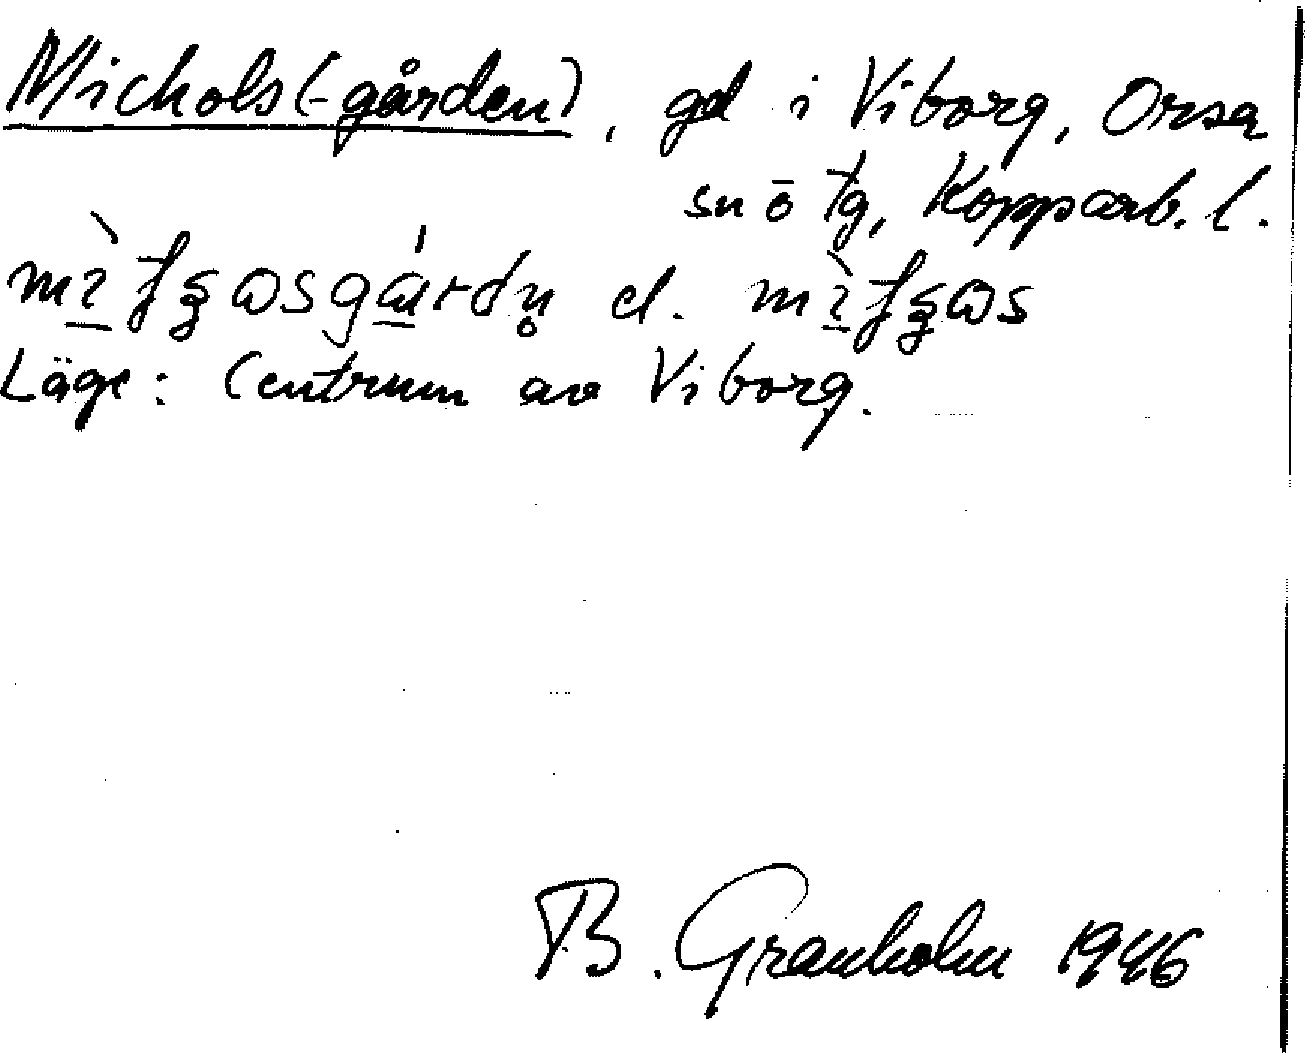 Michols(-gården), gd i Viborg, Orsa
sn ö tg, Kopparb. l.
el.
Läge: Centrum av Viborg.
B. Granholm 1946